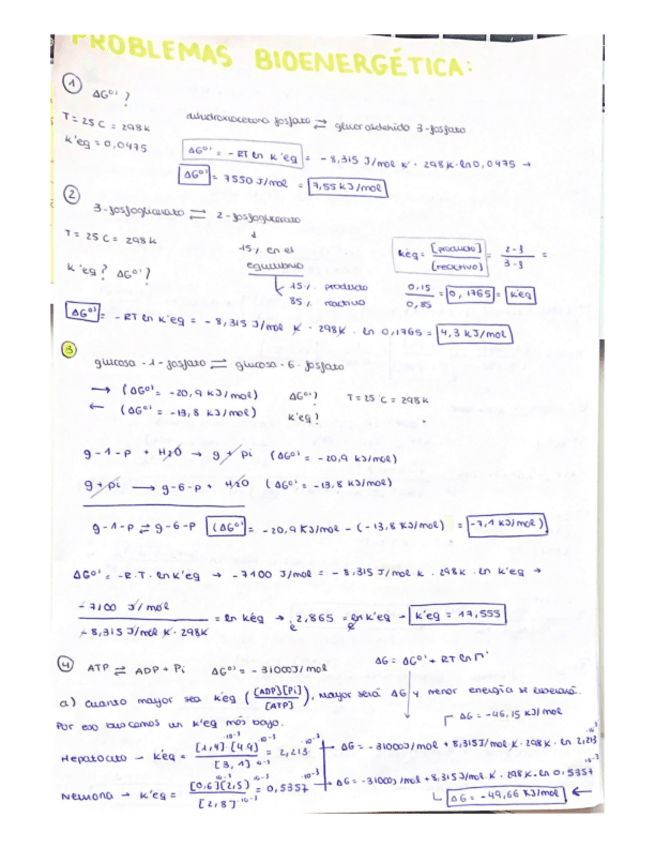 PROBLEMAS BIOENERGÉTICA:
① ΔG°' ?
T = 25 C = 298 K
K'eq = 0,0475
dihidroxiacetona fosfato ⇌ gliceraldehido 3-fosfato
ΔG°' = - RT ln K'eq = - 8,315 J/mol K · 298 K · ln 0,0475 →
ΔG°' = 7550 J/mol = 7,55 KJ/mol
②
3-fosfoglicerato ⇌ 2-fosfoglicerato
T = 25 C = 298 K
↓
15% en el
equilibrio
K'eq? ΔG°'?
15% producto
85% reactivo
Keq = [producto] / [reactivo] = 2-3 / 3-3 =
0,15 / 0,85 = 0,1765 = K'eq
ΔG°' = - RT ln K'eq = - 8,315 J/mol K · 298K · ln 0,1765 = 4,3 KJ/mol
③
glucosa - 1 - fosfato ⇌ glucosa - 6 - fosfato
→ (ΔG°' = -20,9 KJ/mol) ΔG°'? T = 25 C = 298 K
← (ΔG°' = -13,8 KJ/mol) K'eq?
g-1-p + H2O → g + pi (ΔG°' = -20,9 KJ/mol)
g + pi → g-6-p + H2O (ΔG°' = -13,8 KJ/mol)
g-1-p ⇌ g-6-p (ΔG°' = -20,9 KJ/mol - (-13,8 KJ/mol) = -7,1 KJ/mol)
ΔG°' = -R·T·ln K'eq → -7100 J/mol = - 8,315 J/mol·K · 298K · ln K'eq →
-7100 J/mol / - 8,315 J/mol K · 298K = ln Kéq → e 2,865 = e ln K'eq → K'eq = 17,555
④ ATP ⇌ ADP + Pi ΔG°' = -31000 J/mol ΔG = ΔG°' + RT ln Γ
a) Cuanto mayor sea K'eq ([ADP][Pi] / [ATP]), mayor será ΔG y menor energía se liberará.
Por eso buscamos un K'eq más bajo.
ΔG = -46,15 KJ/mol
Hepatocito → K'eq = [1,4]·10⁻³ [4,9]·10⁻³ / [3,1]·10⁻³ = 2,213·10⁻³ → ΔG = -31000 J/mol + 8,315 J/mol·K · 298K · ln 2,213·10⁻³
Neurona → K'eq = [0,6]·10⁻³ [2,5]·10⁻³ / [2,8]·10⁻³ = 0,5357·10⁻³ → ΔG = -31000 J/mol + 8,315 J/mol·K · 298K · ln 0,5357·10⁻³
ΔG = -49,66 KJ/mol ←